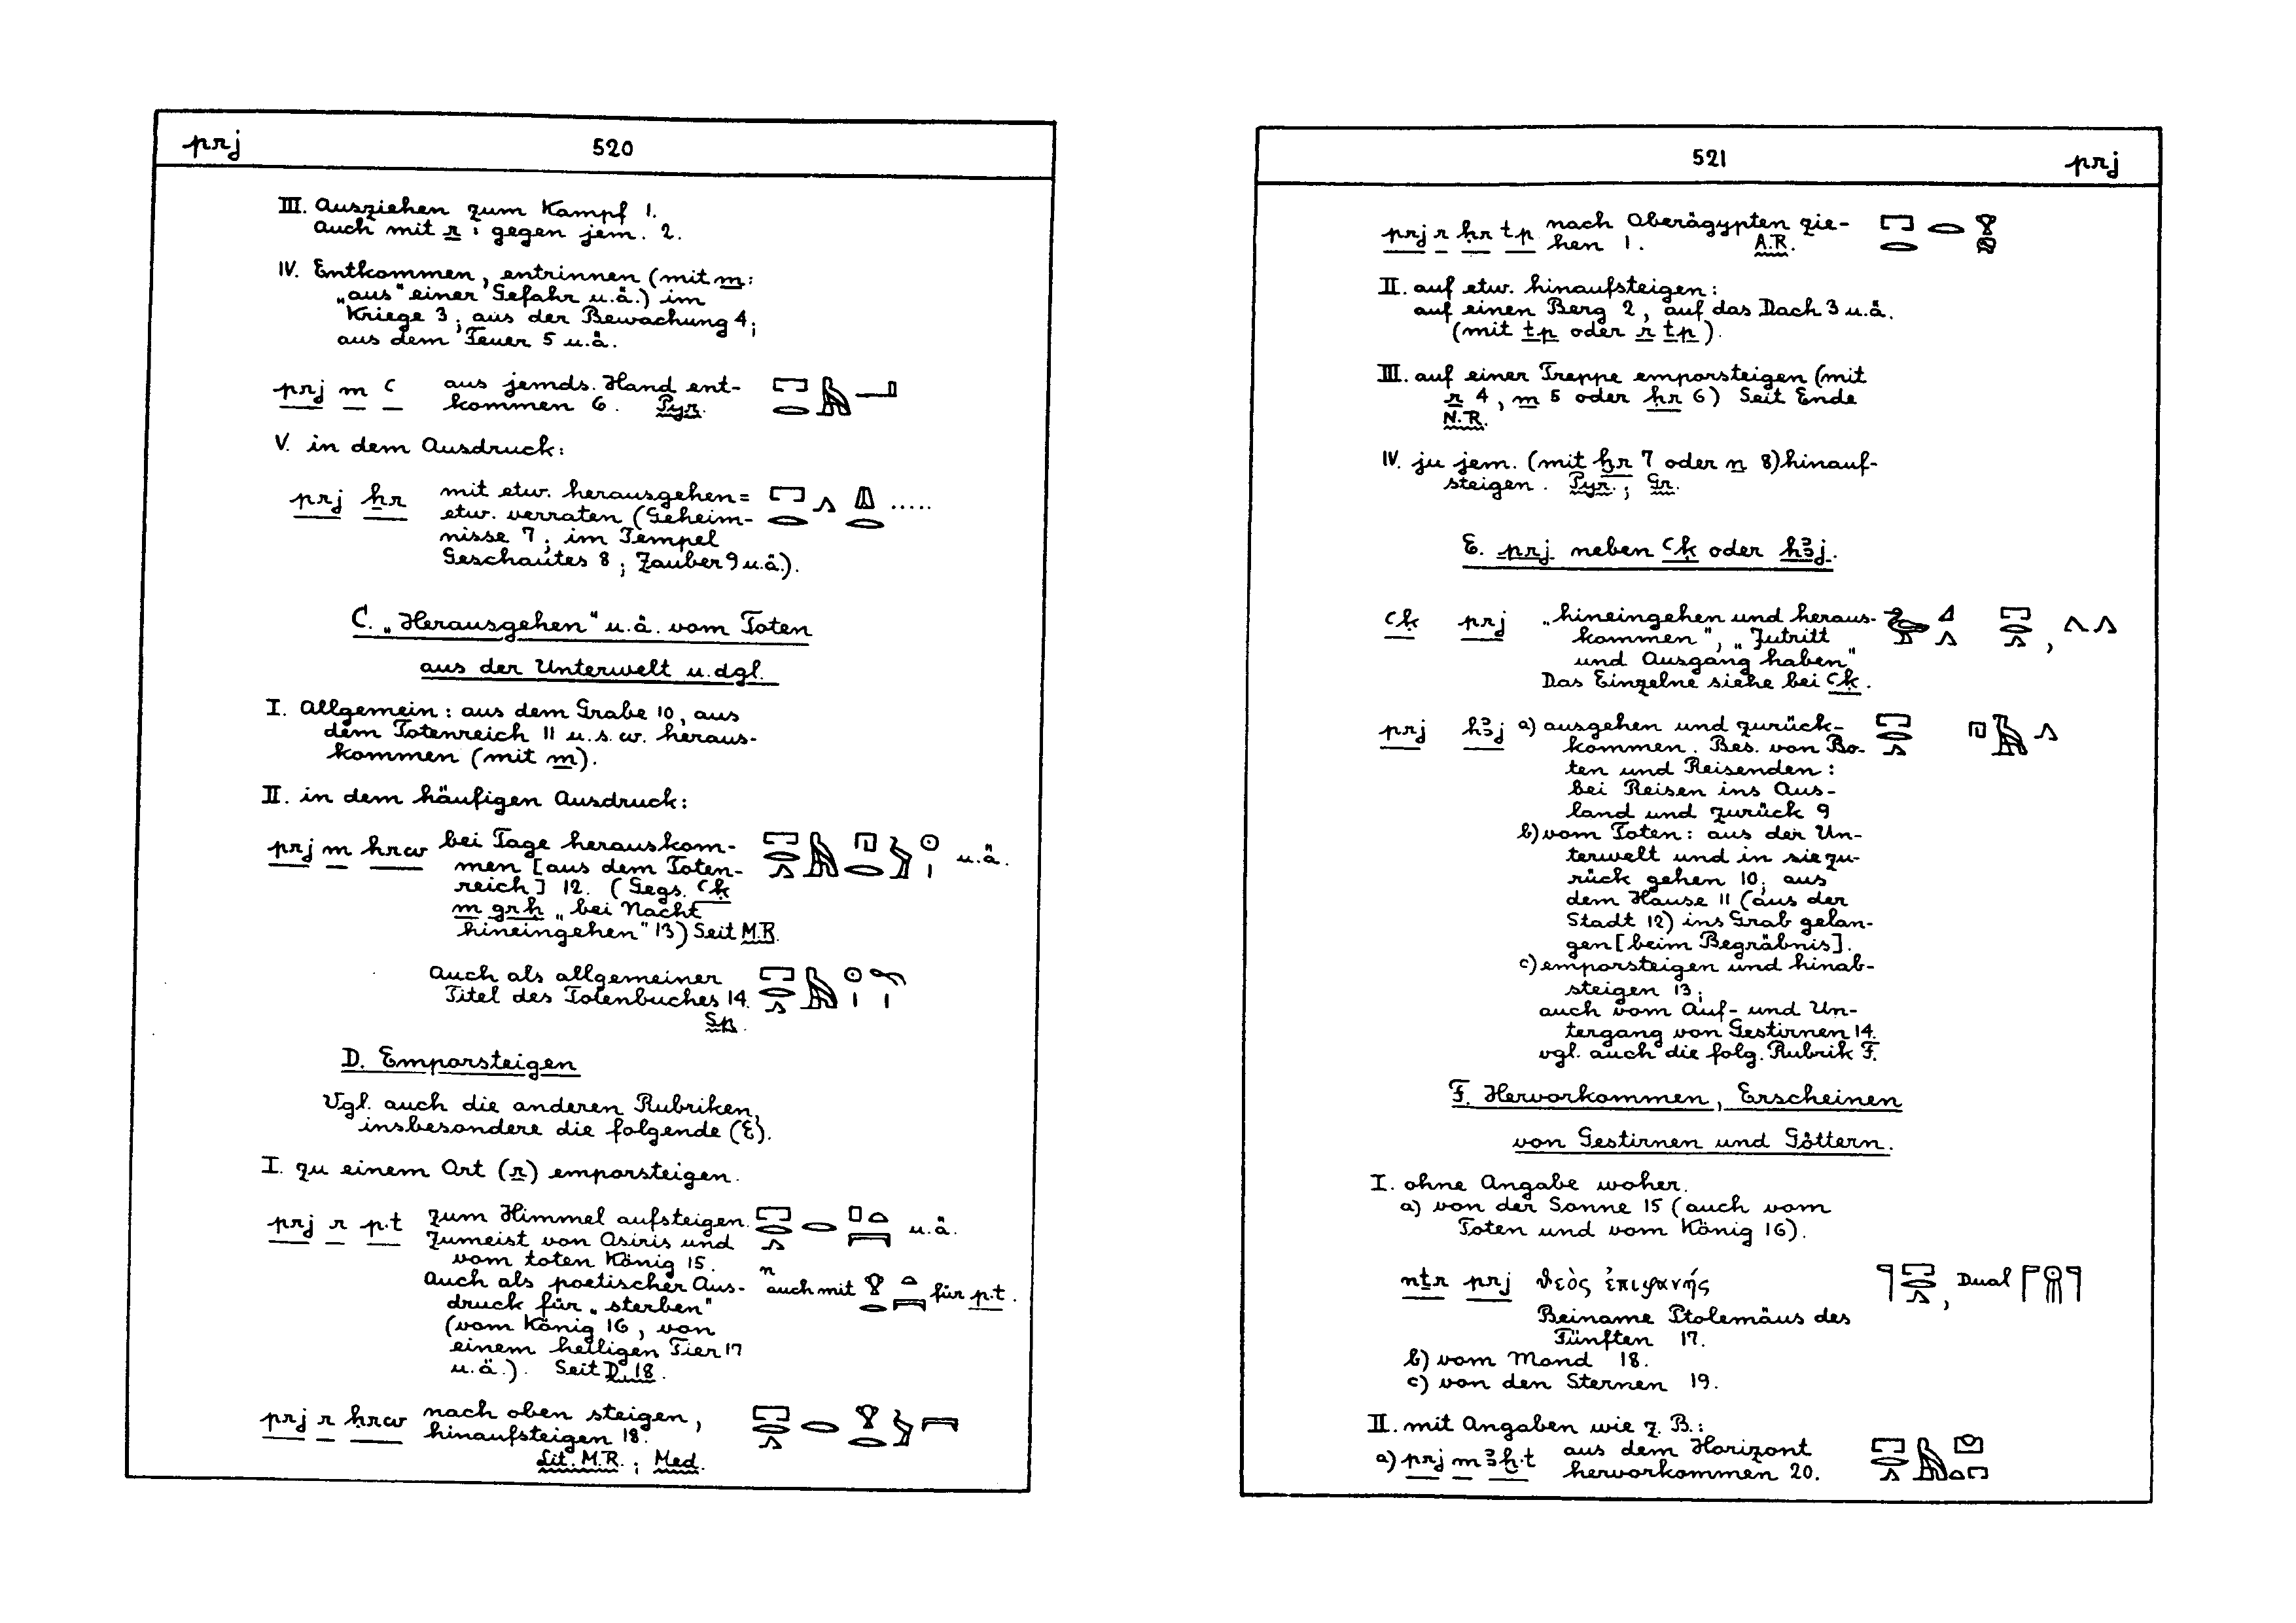 prj 520
III. Ausziehen zum Kampf 1.
Auch mit r : gegen jem. 2.
IV. Entkommen, entrinnen (mit m:
„aus" einer Gefahr u.ä.) im
Kriege 3; aus der Bewachung 4;
aus dem Feuer 5 u.ä.
prj m ꜥ aus jemds. Hand ent-
kommen 6. Pyr.
V. in dem Ausdruck:
prj ẖr mit etw. herausgehen =
etw. verraten (Geheim-
nisse 7; im Tempel
Geschautes 8; Zauber 9 u.ä.).
C. „Herausgehen" u.ä. vom Toten
aus der Unterwelt u.dgl.
I. Allgemein: aus dem Grabe 10, aus
dem Totenreich 11 u.s.w. heraus-
kommen (mit m).
II. in dem häufigen Ausdruck:
prj m hrw bei Tage herauskom-
men [aus dem Toten- u.ä.
reich] 12. (Gegs. ꜥḳ
m grḥ „bei Nacht
hineingehen" 13) Seit M.R.
Auch als allgemeiner
Titel des Totenbuches 14.
Sp.
D. Emporsteigen
Vgl. auch die anderen Rubriken,
insbesondere die folgende (E).
I. zu einem Ort (r) emporsteigen.
prj r p.t zum Himmel aufsteigen. u.ä.
Zumeist von Osiris und
vom toten König 15.
Auch als poetischer Aus- auch mit für p.t.
druck für „sterben"
(vom König 16, von
einem heiligen Tier 17
u.ä.). Seit D. 18.
prj r ḥrw nach oben steigen,
hinaufsteigen 18.
Lit. M.R.; Med.
521 prj
prj r ḥr tp nach Oberägypten zie-
hen 1. A.R.
II. auf etw. hinaufsteigen:
auf einen Berg 2, auf das Dach 3 u.ä.
(mit tp oder r tp).
III. auf einer Treppe emporsteigen (mit
r 4, m 5 oder ḥr 6) Seit Ende
N.R.
IV. zu jem. (mit ḫr 7 oder n 8) hinauf-
steigen. Pyr.; Gr.
E. prj neben ꜥḳ oder hꜣj.
ꜥḳ prj „hineingehen und heraus-
kommen", „Zutritt
und Ausgang haben"
Das Einzelne siehe bei ꜥḳ.
prj hꜣj a) ausgehen und zurück-
kommen. Bes. von Bo-
ten und Reisenden:
bei Reisen ins Aus-
land und zurück 9
b) vom Toten: aus der Un-
terwelt und in sie zu-
rück gehen 10; aus
dem Hause 11 (aus der
Stadt 12) ins Grab gelan-
gen [beim Begräbnis].
c) emporsteigen und hinab-
steigen 13;
auch vom Auf- und Un-
tergang von Gestirnen 14.
vgl. auch die folg. Rubrik F.
F. Hervorkommen, Erscheinen
von Gestirnen und Göttern.
I. ohne Angabe woher.
a) von der Sonne 15 (auch vom
Toten und vom König 16).
nṯr prj θεὸς ἐπιφανής , Dual
Beiname Ptolemäus des
Fünften 17.
b) vom Mond 18.
c) von den Sternen 19.
II. mit Angaben wie z. B.:
a) prj m ꜣḫ.t aus dem Horizont
hervorkommen 20.